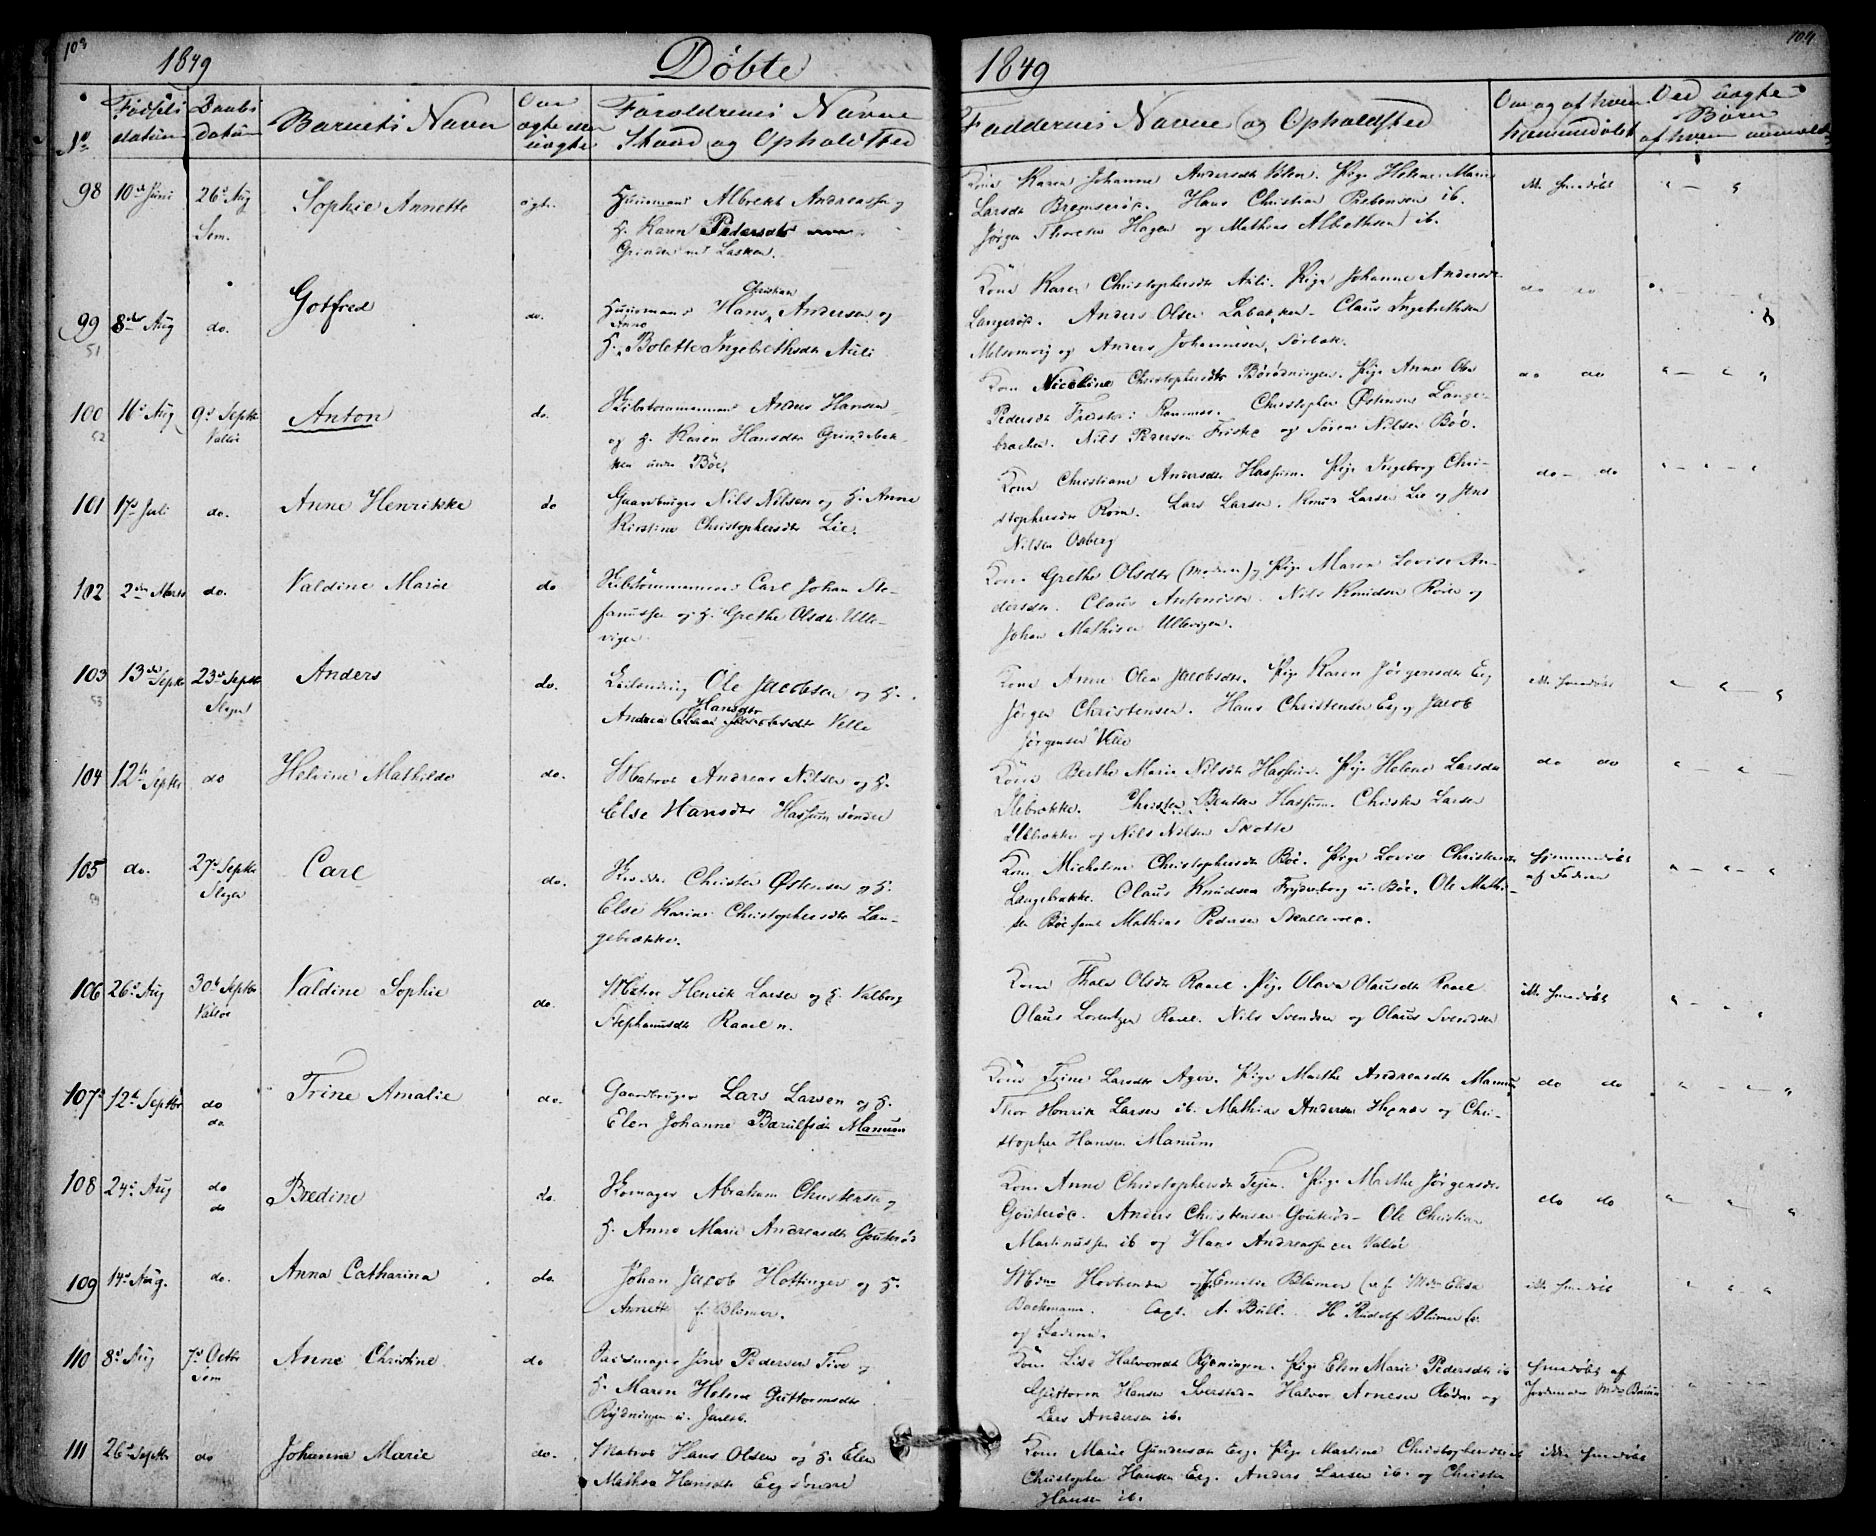 103
1849
Døbte
1849
104
No
Fødsels datum
Daabs datum
Barnets Navn
Om ægte eller uægte
Forældrenes Navne Stand og Opholdsted
Faddernes Navne og Opholdsted
Om og af hvem hjemmedøbt
Ved uægte Børn af hvem anmeldt
98 10de Juni 26de Aug Sem. Sophie Annette ægte
Huusmand Albrekt Andreassen og
H. Karen Pedersdtr
Grinden Lasken.
Kone Karen Johanne Andersdtr Pige Helene Marie
Larsdtr Bremserød. Hans Christian Prebensen ib.
Jørgen Thoresen Hagen og Mathias Albrethsen ib.
ikke hmdøbt
99 8de Aug do. Gotfred do.
51
Huusmand Hans Christian Andersen og
H. Anne Bolette Ingebrethsdtr Auli
Kone Karen Christophersdtr Auli. Pige Johanne Andersdtr
Langerød. Anders Olsen Labakken. Claus Ingebrethsen
Melsomvig og Anders Johannesen, Sørbøk.
do do
100 16de Aug 9de Septbr Valløe Anton do.
52
Skibstømmermand Anders Hansen
og H. Karen Hansdtr Grindebak-
ken under Bøe.
Kone Nicoline Christophersdtr Børødningen. Pige Anne Olea
Pedersdtr Freste i Ramnæs. Christopher Østensen Lange-
brækken. Nils Pedersen Friske og Søren Nilsen Bøe.
do do
101 17de Juli do. Anne Henrikke do
Gaardbruger Nils Nilsen og H. Anne
Kirstine Christophersdtr Lie.
Kone Christiane Andersdtr Hassum. Pige Ingeborg Chri-
stophersdtr Rom. Lars Larsen. Knud Larsen Lie og Jens
Nilsen Osberg
do do
102 2den Marts do. Valdine Marie do
Skibstømmermand Carl Johan Ste-
fanussen og H. Grethe Olsdtr Ulle-
vigen
Kone Grethe Olsdtr (Moderen) og Pige Maren Lovise An-
dersdtr. Claus Antonisen. Nils Knudsen Røren og
Johan Mathisen Ullevigen.
103 13de Septbr 23de Septbr Slagen Anders do.
53
Leilending Ole Jacobsen og H.
Andrea Hansdtr Velle
Kone Anne Olea Jacobsdtr. Pige Karen Jørgensdtr Eeg
Jørgen Christensen. Hans Christensen Eeg og Jacob
Jørgensen Velle
ikke hmdøbt
104 12te Septbr do Helvine Mathilde do.
Matros Andreas Nilsen og H.
Else Hansdtr Hassum søndre
Kone Berthe Marie Nilsdtr Hassum. Pige Helene Larsdtr
Ilebrække. Christen Bentsen Hassum. Christen Larsen
Ilebrække og Nils Nilsen Skotte
do do
105 do. 27de Septbr Slagen Carl do.
54
Christen Østensen og H.
Else Karine Christophersdtr Lan-
gebrække.
Kone Micheline Christophersdtr Bøe. Pige Lovise Christensdtr
Langebrække. Claus Knudsen Frydenborg u. Bøe. Ole Mathi-
sen Bøe samt Mathias Pedersen Skallevold.
Hjemmedøbt
af Faderen
106 26de Aug 30te Septbr Valløe Valdine Sophie do.
Matros Henrik Larsen og H. Valborg
Stephanusdtr Raael n.
Kone Thale Olsdtr Raael. Pige Olava Olausdtr Raael
Olaus Lorentzen Raael. Nils Svendsen og Olaus Svendsen
ikke hmdøbt
107 12te Septbr do do Trine Amalie do.
Gaardbruger Lars Larsen og H.
Elen Johanne Berulfsdtr Manum
Kone Trine Larsdtr Ager. Pige Marthe Andreasdtr Manum
Thor Henrik Larsen ib. Mathias Andersen Hesnæs og Chri-
stopher Hansen Manum
do do
108 24de Aug do do Bredine do.
Skomager Abraham Christensen og
H. Anne Marie Andreasdtr Gouterød
Kone Anne Christophersdtr Fejen. Pige Marthe Jørgensdtr
Gouterød. Anders Christensen Gouterød. Ole Christian
Martinussen ib og Hans Andreassen Valløe
do do
109 14de Aug. do. Anna Catharina do.
Johan Jacob Hottinger og H.
Annette f. Blumer.
Emilie Blumer Elisa
Bachmann. Capt. A. Bull. H. Rudolf Blumer
og Faderen.
ikke hmdøbt
110 8de Aug 7de Octbr Sem Anne Christine do
Jens Pedersen og
H. Maren Helene Guttormsdtr
Rydningen u. Jarlsb.
Kone Lise Halvorsdtr Rydningen. Pige Elen Marie Pedersdtr ib
Guttorm Hansen Sverstad. Halvor Arnesen Rødm og
Lars Andersen ib.
hmdøbt af
Jordemoder
111 26de Septbr do Johanne Marie do.
Matros Hans Olsen og H. Elen
Mathea Hansdtr Eeg søndre
Kone Marie Gundersdtr Eeg. Pige Martine Christophersdtr ib
Christopher Hansen Eeg. Anders Larsen ib. og Christen
Hansen ib.
ikke hmdøbt